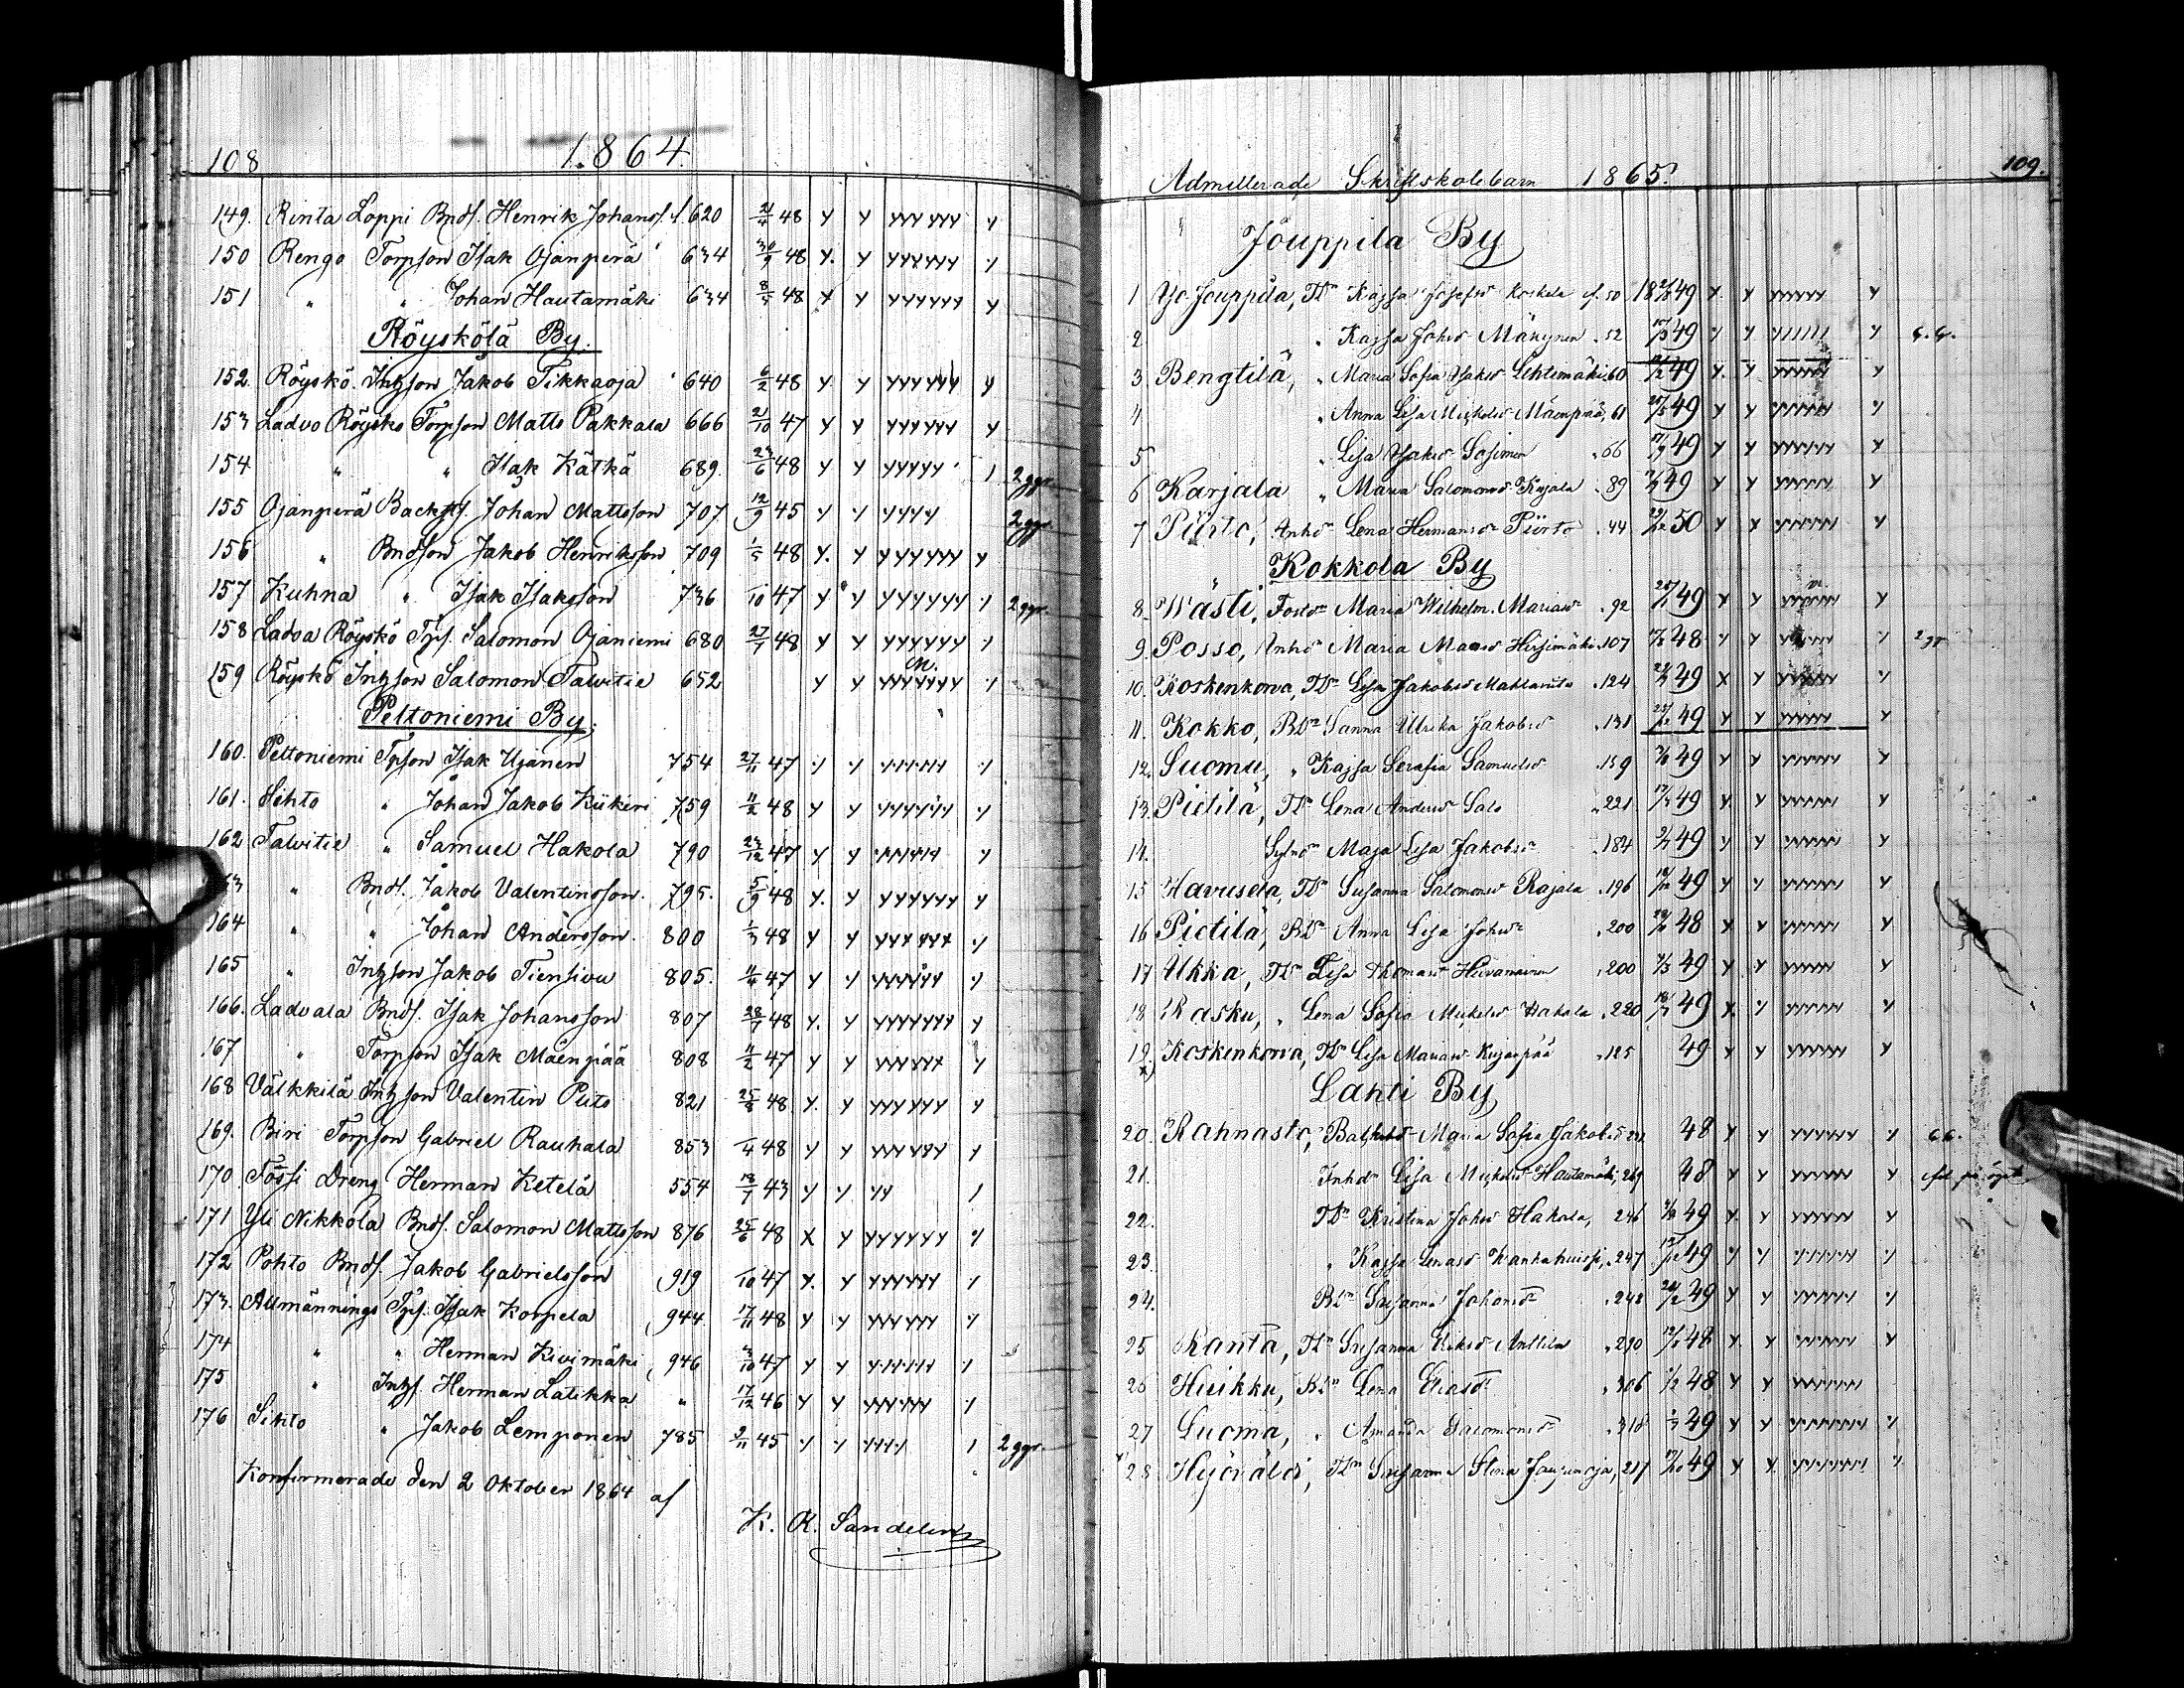 108
1864.
149. Rinta Loppi Bndss. Henrik Johanss. f. 620 21/4 48 Y Y YYYYYY Y
150 Rengo Torpson Isak Ojanperä 634 30/9 48 Y. Y YYYYYY Y
151 " " Johan Hautamäki 634 8/5 48 Y Y YYYYYY Y
Röyskölä By.
152. Röyskö Inhson Jakob Tikkaoja 640 6/2 48 Y Y YYYYYY Y
153 Ladvo Röyskö Torpson Matts Pakkala 666 21/10 47 Y Y YYYYYY Y
154 " " Isak Kätkä 689. 23/6 48 Y Y YYYYY 1 2 ggr.
155 Ojanperä Backss. Johan Mattsson 707. 12/9 45 Y Y YYYY 2 ggr.
156 " Bndson Jakob Henriksson 709 1/5 48 Y. Y YYYYYY Y
157 Kuhna " Isak Isaksson 736 /10 47 Y Y YYYYYY 1 2 ggr.
158 Ladva Röyskö Tps. Salomon Ojaniemi 680 27/7 48 Y Y YYYYYY Y
159 Röyskö Inhson Salomon Talvitie 652 Y Y YYYYYY Y
Peltoniemi By.
160. Peltoniemi Tpson Isak Ujanen 754 27/11 47 Y Y YYYYYY Y
161. Sihto " Johan Jakob Kiikeri 759 11/2 48 Y Y YYYYYY Y
162 Talvitie " Samuel Hakola 790 23/12 47 Y Y YYYYYY Y
" Bndss. Jakob Valentinsson. 795. 5/9 48 Y. Y YYYYYY Y
164 " " Johan Andersson. 800 /3 48 Y Y YYYYYY Y
165 " Inhson Jakob Tiensivu 805. 11/4 47 Y Y YYYYYY Y
166. Ladvala Bndss. Isak Johansson 807 28/7 48 Y. Y YYYYYYY Y
167 " Torpson Isak Mäenpää 808 11/2 47 Y Y YYYYYY Y
168 Välkkilä Inhson Valentin Puto 821 25/8 48 Y. Y YYYYYY Y
169. Biri Torpson Gabriel Rauhala 853 /4 48 Y Y YYYYYY Y
170. Tössi Dreng Herman Ketelä 554 18/7 43 Y Y YY 1
171 Yli Nikkola Bndss. Salomon Mattsson 876 25/6 48 X Y YYYYYY Y
172 Pohto Bndss. Jakob Gabrielsson 919 /10 47 Y. Y YYYYYY Y
173. Allmännings Tps. Isak Korpela 944 17/11 48 Y Y YYYYYY Y
174 " " Herman Kivimäki 946 3/10 47 Y Y YYYYYY Y
175 " Inhs. Herman Latikka " 17/12 46 Y Y YYYYYY Y
176 Sihto " Jakob Lemponen 785 9/11 45 Y Y YYYY 1 2 ggr.
Konfirmerade den 2 Oktober 1864 af
K. A. Sandelin
109.
Admitterade Skriftskolebarn 1865.
Jouppila By
1 Yo Jouppila, Tdr Kajsa Josefsd. Koskela f. 50 49 Y. Y YYYYYY Y
2 " Kajsa Johsd Mäkynen 52 49 Y Y Y
3 Bengtilä, " Maria Sofia Isaksd Lehtimäki 60 49 Y. Y YYYYYY Y
4 " Anna Lisa Michelsd Mäenpää, 61 49 Y Y YYYYYY Y
5 " Lisa Isaksd 66 49 Y Y YYYYYY Y
6 Karjala " Maria Salomonsd 89 49 Y Y YYYYYY Y
7 Piirto, Inhdr Lena Hermansdr Piirto 44 50 Y Y YYYYYY Y
Kokkola By
8. Wästi, Maria Wilhelm. Mariasdr 92 49 Y Y YYYYYY Y
9. Posso, Inhdr Maria Hirsimäki 107 48 Y Y YYYYYY Y 2 gr
10. Koskenkorva, Tdr Lisa Jakobsd 124 49 X Y YYYYYY Y
11. Kokko, Bdr Sanna Ulrika Jakobsd 131 49 Y Y YYYYYY Y
12. Luomu, " Kajsa Serafia Samuelsd 159 49 Y Y YYYYYY Y
13. Pietilä, Tdr Lena Andersd Salo 221 49 Y Y YYYYYY Y
14. Maja Lisa Jakobsdr 184 49 Y Y YYYYYY Y
15 Havusela, Tdr Susanna Salomonsd Rajala 196 49 Y Y YYYYYY Y
16 Pietilä, Bdr Anna Lisa Johsdr 200 48 Y Y YYYYYY Y
17 Ukka, Tdr Lisa Thomasd 200 49 Y Y YYYYYY Y
18 Rasku, " Lena Sofia Michelsd Hakala 220 49 Y Y YYYYYY Y
19. Koskenkorva, Tdr Lisa Mariasd 125 49 Y Y YYYYYY Y
Lahti By
20. Rahnasto, Maria Sofia Jakobsd 48 Y Y YYYYYY Y
21. Inhdr Lisa Michelsd Hautamäki, 269 48 Y Y YYYYYY Y
22. Tdr Kristina Johsd Hakala, 246 49 Y Y YYYYYY Y
23. " Kajsa 247 49 Y Y YYYYYY Y
24. Bdr Susanna Johansdr 248 49 Y Y YYYYYY Y
25 Ranta, Tdr Susanna Eriksd Anttila 290 48 Y. Y YYYYYY Y
26 Huikku, Bdr Lena Eliasdr 306 48 Y Y YYYYYY
27 Luoma, " Amanda Salomonsdr 318 49 Y Y YYYYYY Y
28 Tdr Susanna Stina 49 Y Y YYYYYY Y